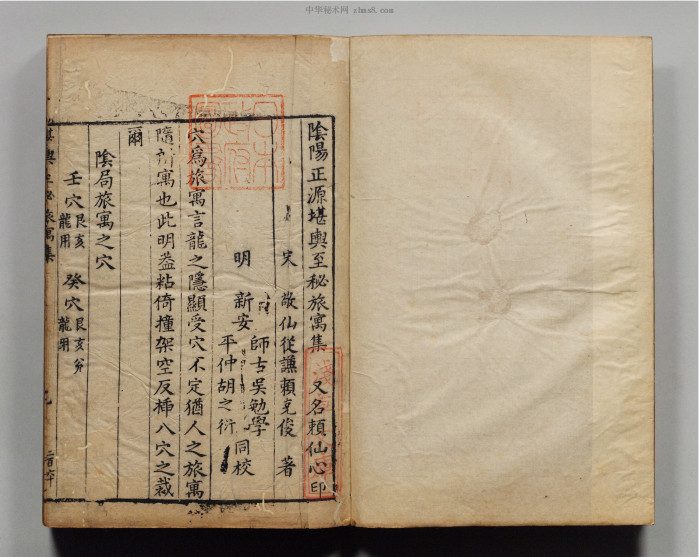 中华秘术网 zhms8.com
陰陽正源堪輿至秘旅寓集 又名頼仙心印
宋 敬仙從謙頼克俊 著
明 新安 師古吳勉學 平仲胡之衍 同校
穴為旅寓言龍之隱顯受穴不定猶人之旅寓
隨所寓也此明葢粘倚撞架空反揷八穴之裁
爾
陰局旅寓之穴
壬穴艮亥龍用 癸穴艮亥
堪輿至秘旅寓集